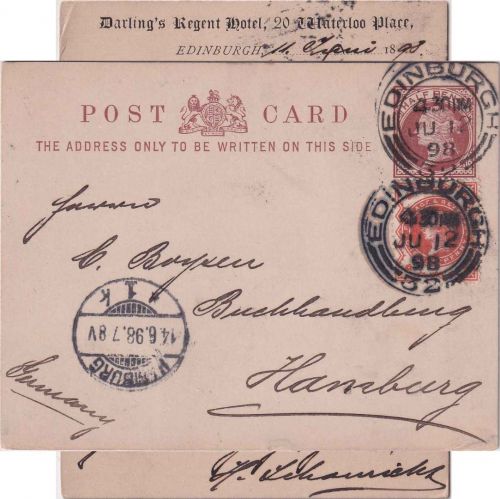 Darling's Regent Hotel, 20 Waterloo Place,
EDINBURGH, 11. Juni 1898
POST CARD
THE ADDRESS ONLY TO BE WRITTEN ON THIS SIDE
HALF PENNY
EDINBURGH
JU 12
98
32
EDINBURGH
JU 12
98
32
Herrn
C. Boysen
Buchhandlung
Hamburg
Germany
HAMBURG
14.6.98.7-8V
1 k